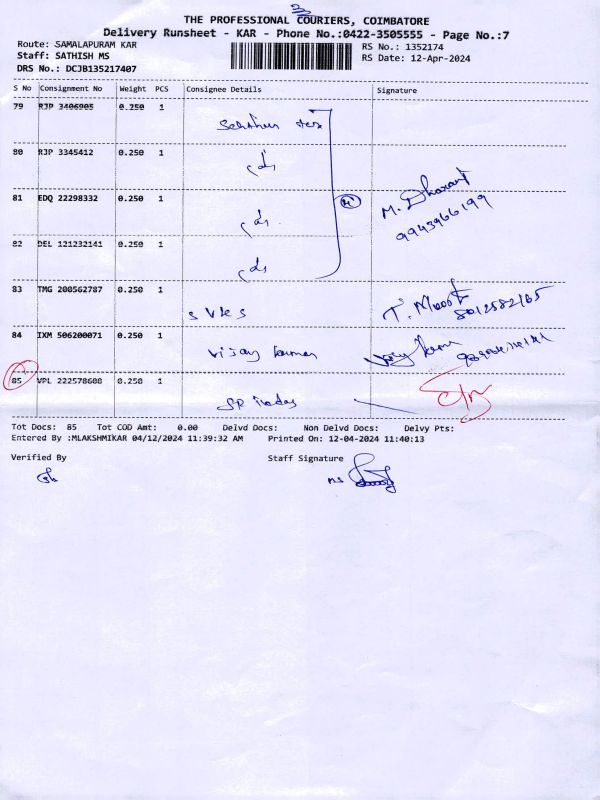 3
THE PROFESSIONAL COURIERS, COIMBATORE
Delivery Runsheet - KAR - Phone No.:0422-3505555 - Page No.:7
Route: SAMALAPURAM KAR
RS No.: 1352174
Staff: SATHISH MS
RS Date: 12-Apr-2024
DRS No.: DCJB135217407
S No Consignment No Weight PCS Consignee Details Signature
79 RJP 3406905 0.250 1
80 RJP 3345412 0.250 1
81 EDQ 22298332 0.250 1
M. Dharani
9943966199
82 DEL 121232141 0.250 1
83 TMG 200562787 0.250 1
s vks
84 IXM 506200071 0.250 1
Vijay kumar
85 VPL 222578608 0.250 1
Tot Docs: 85 Tot COD Amt: 0.00 Delvd Docs: Non Delvd Docs: Delvy Pts:
Entered By :MLAKSHMIKAR 04/12/2024 11:39:32 AM Printed On: 12-04-2024 11:40:13
Verified By Staff Signature